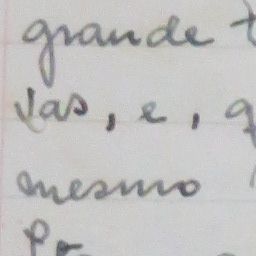 grande t
sas, e, q
mesmo